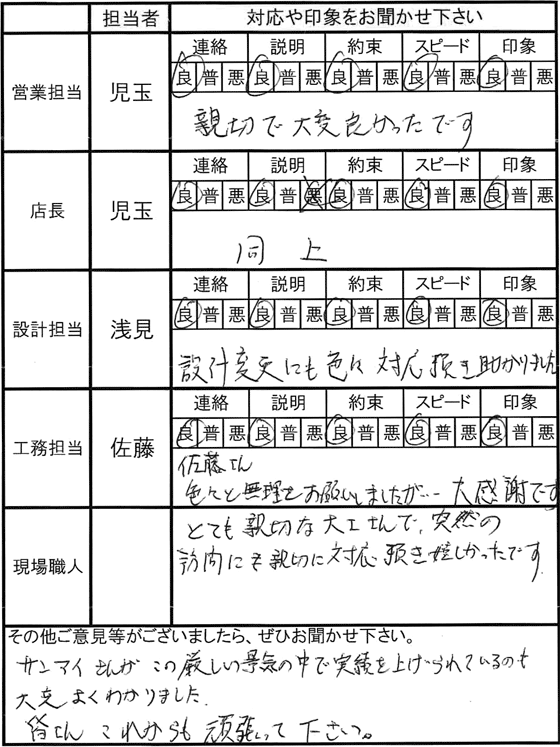 担当者 対応や印象をお聞かせ下さい
連絡 説明 約束 スピード 印象
営業担当 児玉 良 普 悪 良 普 悪 良 普 悪 良 普 悪 良 普 悪
親切で大変良かったです
連絡 説明 約束 スピード 印象
店長 児玉 良 普 悪 良 普 悪 良 普 悪 良 普 悪 良 普 悪
同 上
連絡 説明 約束 スピード 印象
設計担当 浅見 良 普 悪 良 普 悪 良 普 悪 良 普 悪 良 普 悪
設計変更にも色々対応頂き助かりました
連絡 説明 約束 スピード 印象
工務担当 佐藤 良 普 悪 良 普 悪 良 普 悪 良 普 悪 良 普 悪
佐藤さん
色々と無理をお願いしましたが… 大感謝です
現場職人 とても親切な大工さんで、突然の
訪問にも親切に対応頂き嬉しかったです
その他ご意見等がございましたら、ぜひお聞かせ下さい。
サンマイさんがこの厳しい景気の中で実績を上げられているのも
大変よくわかりました.
皆さん これからも 頑張って下さい。